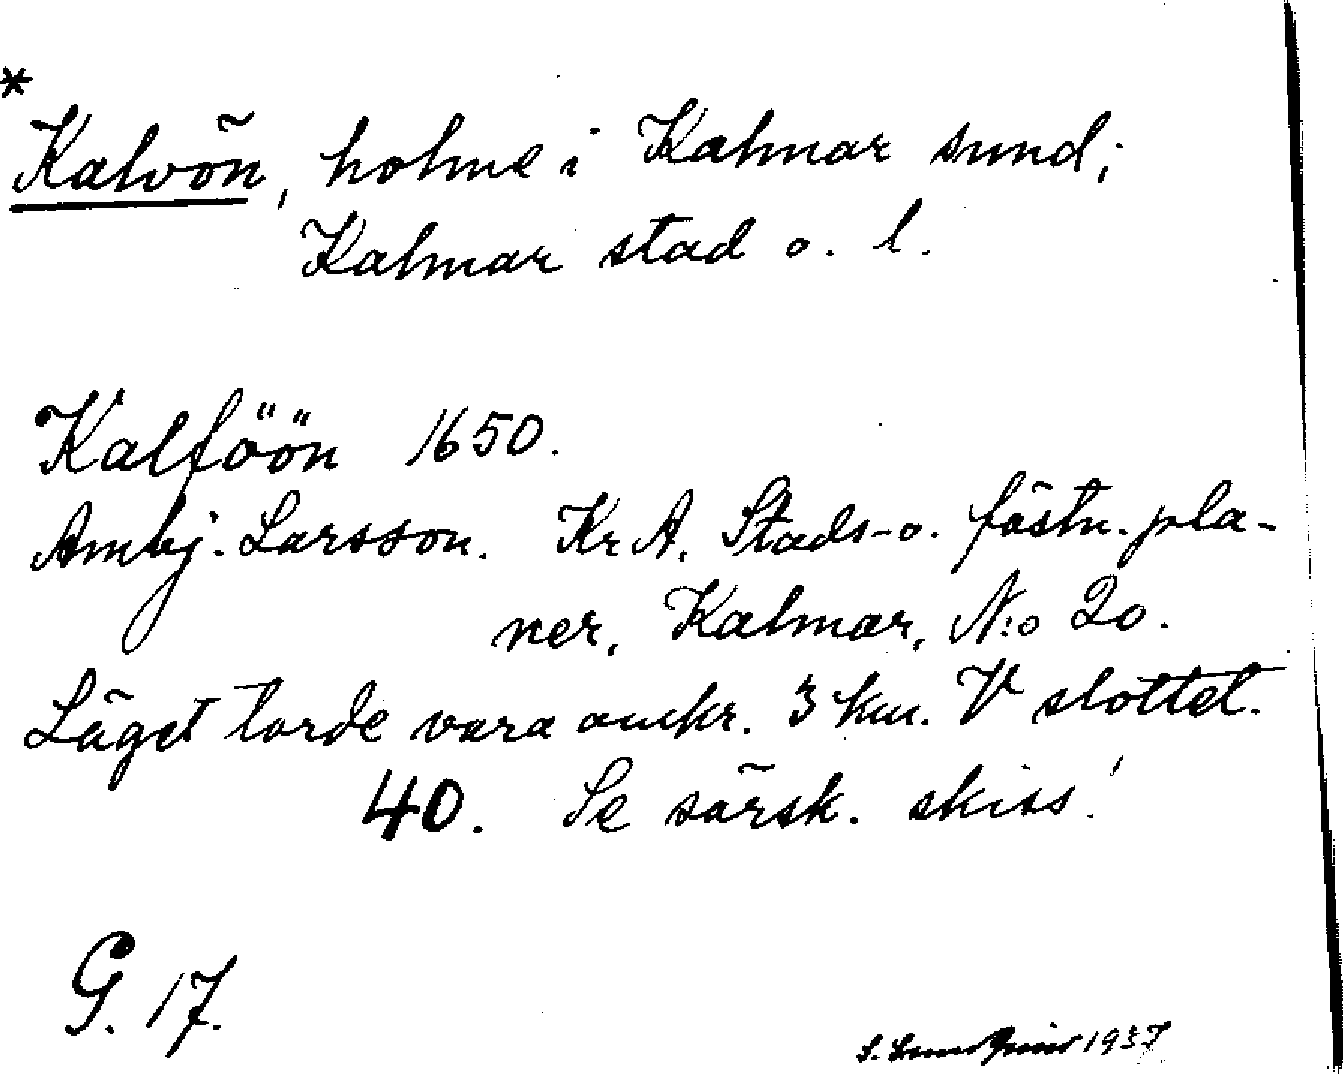 *
Kalvön, holme i Kalmar sund;
Kalmar stad o. l.
Kalföön 1650.
Ambj. Larsson. Kr A. Stads- o. fästn. pla-
ner, Kalmar, N:o 20.
Läget torde vara omkr. 3 km. V slottet.
40. Se särsk. skiss!
G. 17.
S. 1937